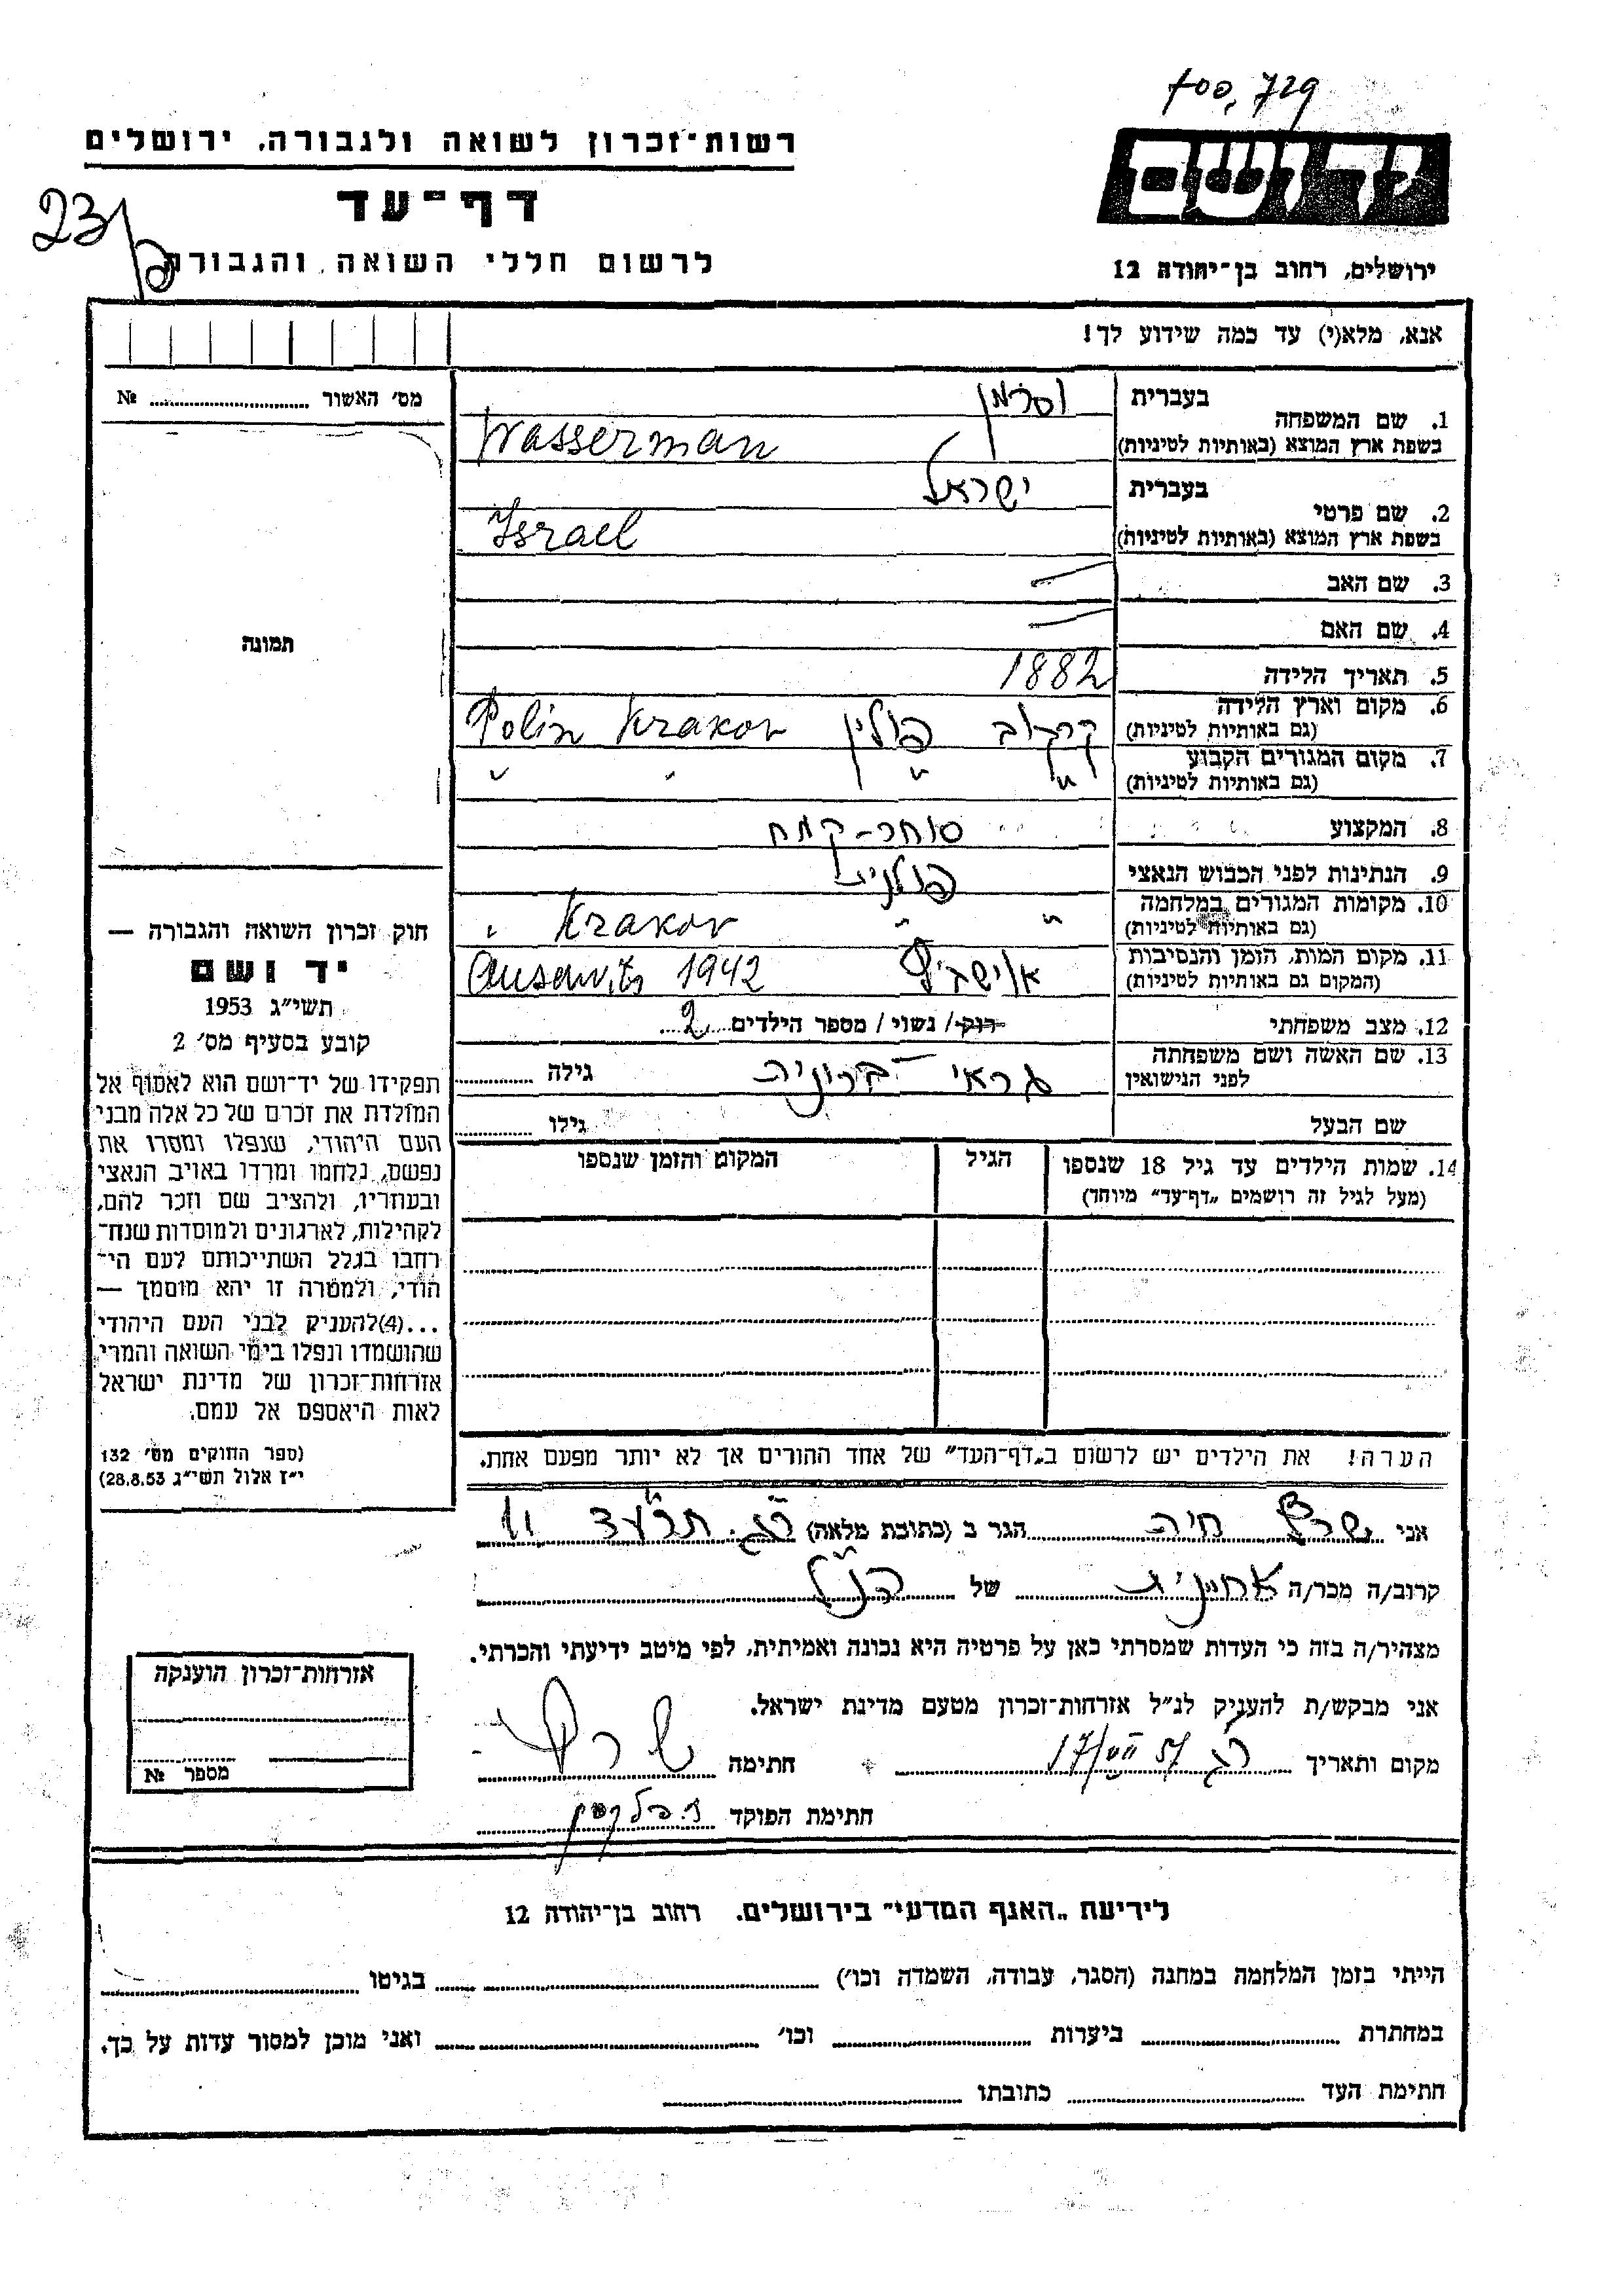 400,729
רשות־זכרון לשואה ולגבורה, ירושלים
יד ושם
דף־עד
23/
לרשום חללי השואה והגבורה
ירושלים, רחוב בן־יהודה 12
אנא, מלא(י) עד כמה שידוע לך!
מס׳ האשור № 
1. שם המשפחה בעברית וסרמן
בשפת ארץ המוצא (באותיות לטיניות) Wasserman
2. שם פרטי בעברית ישראל
בשפת ארץ המוצא (באותיות לטיניות) Israel
3. שם האב —
4. שם האם —
5. תאריך הלידה 1882
6. מקום וארץ הלידה (גם באותיות לטיניות) קרקוב פולין Polin Krakov
7. מקום המגורים הקבוע (גם באותיות לטיניות) " " " "
8. המקצוע סוחר-קמח
9. הנתינות לפני הכבוש הנאצי פולנית
10. מקומות המגורים במלחמה (גם באותיות לטיניות) " " Krakov "
11. מקום המות, הזמן והנסיבות (המקום גם באותיות לטיניות) אושביץ Auswits 1942
12. מצב משפחתי רוק/ נשוי/ מספר הילדים 2
13. שם האשה ושם משפחתה לפני הנישואין גילה
שם הבעל גילו
14. שמות הילדים עד גיל 18 שנספו הגיל המקום והזמן שנספו
(מעל לגיל זה רושמים „דף־עד״ מיוחד)
תמונה
חוק זכרון השואה והגבורה —
יד ושם
תשי״ג 1953
קובע בסעיף מס׳ 2
תפקידו של יד־ושם הוא לאסוף אל
המולדת את זכרם של כל אלה מבני
העם היהודי, שנפלו ומסרו את
נפשם, נלחמו ומרדו באויב הנאצי
ובעוזריו, ולהציב שם וזכר להם,
לקהילות, לארגונים ולמוסדות שנח־
רחבו בגלל השתייכותם לעם הי־
הודי, ולמטרה זו יהא מוסמך —
...(4)להעניק לבני העם היהודי
שהושמדו ונפלו בימי השואה והמרי
אזרחות־זכרון של מדינת ישראל
לאות היאספם אל עמם.
(ספר החוקים מס׳ 132
י״ז אלול תשי״ג 28.8.53)
הערה! את הילדים יש לרשום ב„דף־העד״ של אחד ההורים אך לא יותר מפעם אחת.
אני שרץ חיה הגר ב (כתובת מלאה) רג. תרע״ד 11
קרוב/ה מכר/ה אחינית של הנ״ל
מצהיר/ה בזה כי העדות שמסרתי כאן על פרטיה היא נכונה ואמיתית, לפי מיטב ידיעתי והכרתי.
אני מבקש/ת להעניק לנ״ל אזרחות־זכרון מטעם מדינת ישראל.
מקום ותאריך רג 17/VII 57 חתימה שרץ
חתימת הפוקד
אזרחות־זכרון הוענקה
מספר №
לידיעת „האגף המדעי״ בירושלים, רחוב בן־יהודה 12
הייתי בזמן המלחמה במחנה (הסגר, עבודה, השמדה וכו׳) בגיטו
במחתרת ביערות וכו׳ ואני מוכן למסור עדות על כך.
חתימת העד כתובתו